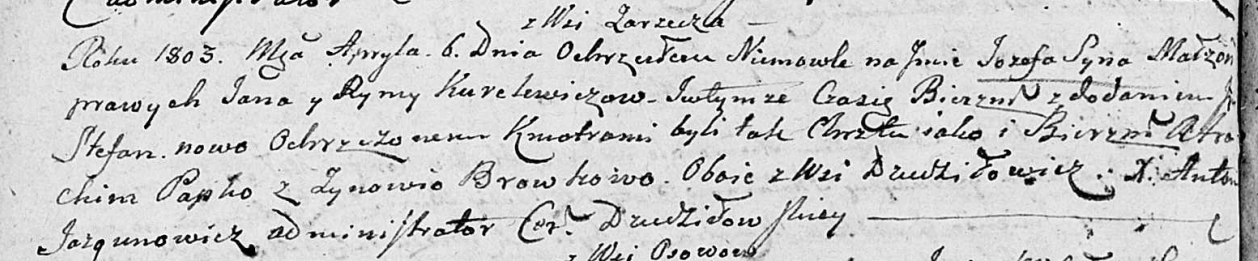 administrator
z Wsi Zarzecza —
Roku 1803. Mca Apryla. 6. Dnia Ochrzciłem Niemowle na Jmie Jozefa Syna Małzon
prawych Jana y Rymy Kurelewiczow. Jwtymze Czasię Bierzm z dodaniem
Stefan. nowo Ochrzczonemu Kmotrami byli tak Chrztu iako i Bierzm Atro
chim Papko z Zynowio Browkowo. Oboie z Wsi Dzudziłowicz. X. Anton
Jazgunowicz administrator Cer. Dzudziłow skiey —
z Wsi Osowow